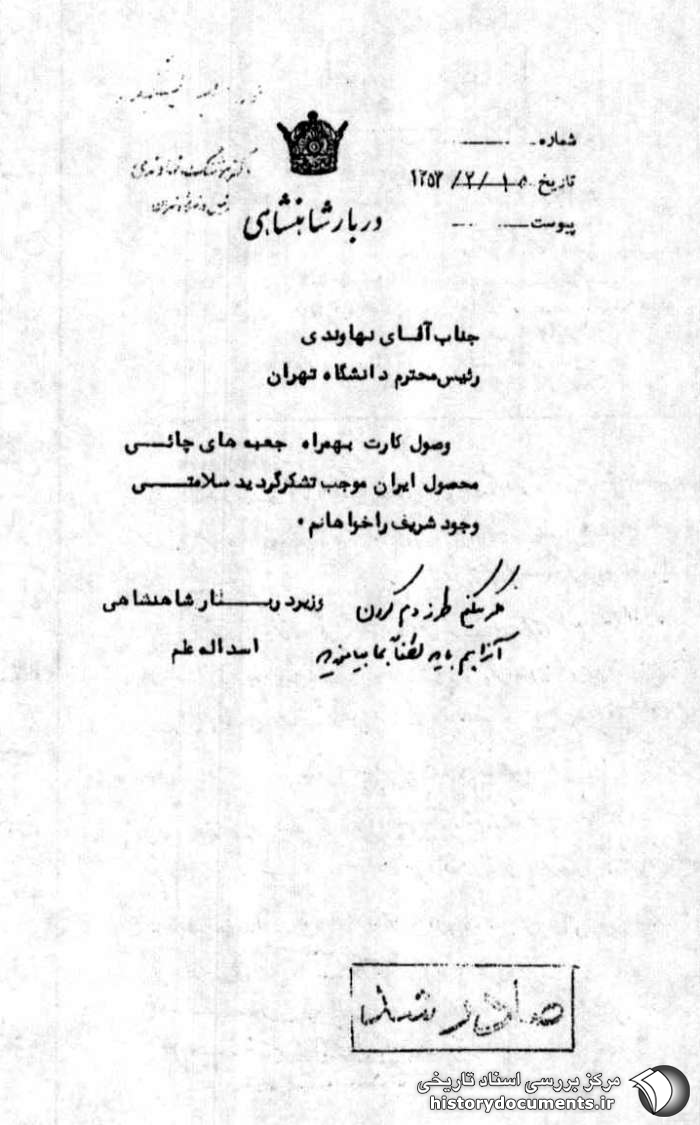 شماره
تاریخ ۱۳۵۳/۲/۱۵
پیوست
دکتر هوشنگ نهاوندی
دربار شاهنشاهی
جناب آقای نهاوندی
رئیس محترم دانشگاه تهران
وصول کارت بهمراه جعبه های چائی
محصول ایران موجب تشکر گردید سلامتی
وجود شریف را خواهانم.
وزیر دربار شاهنشاهی
اسداله علم
طرز دم کردن
آنرا هم باید لطفاً بما بیاموزید
صادر شد
مرکز بررسی اسناد تاریخی
historydocuments.ir